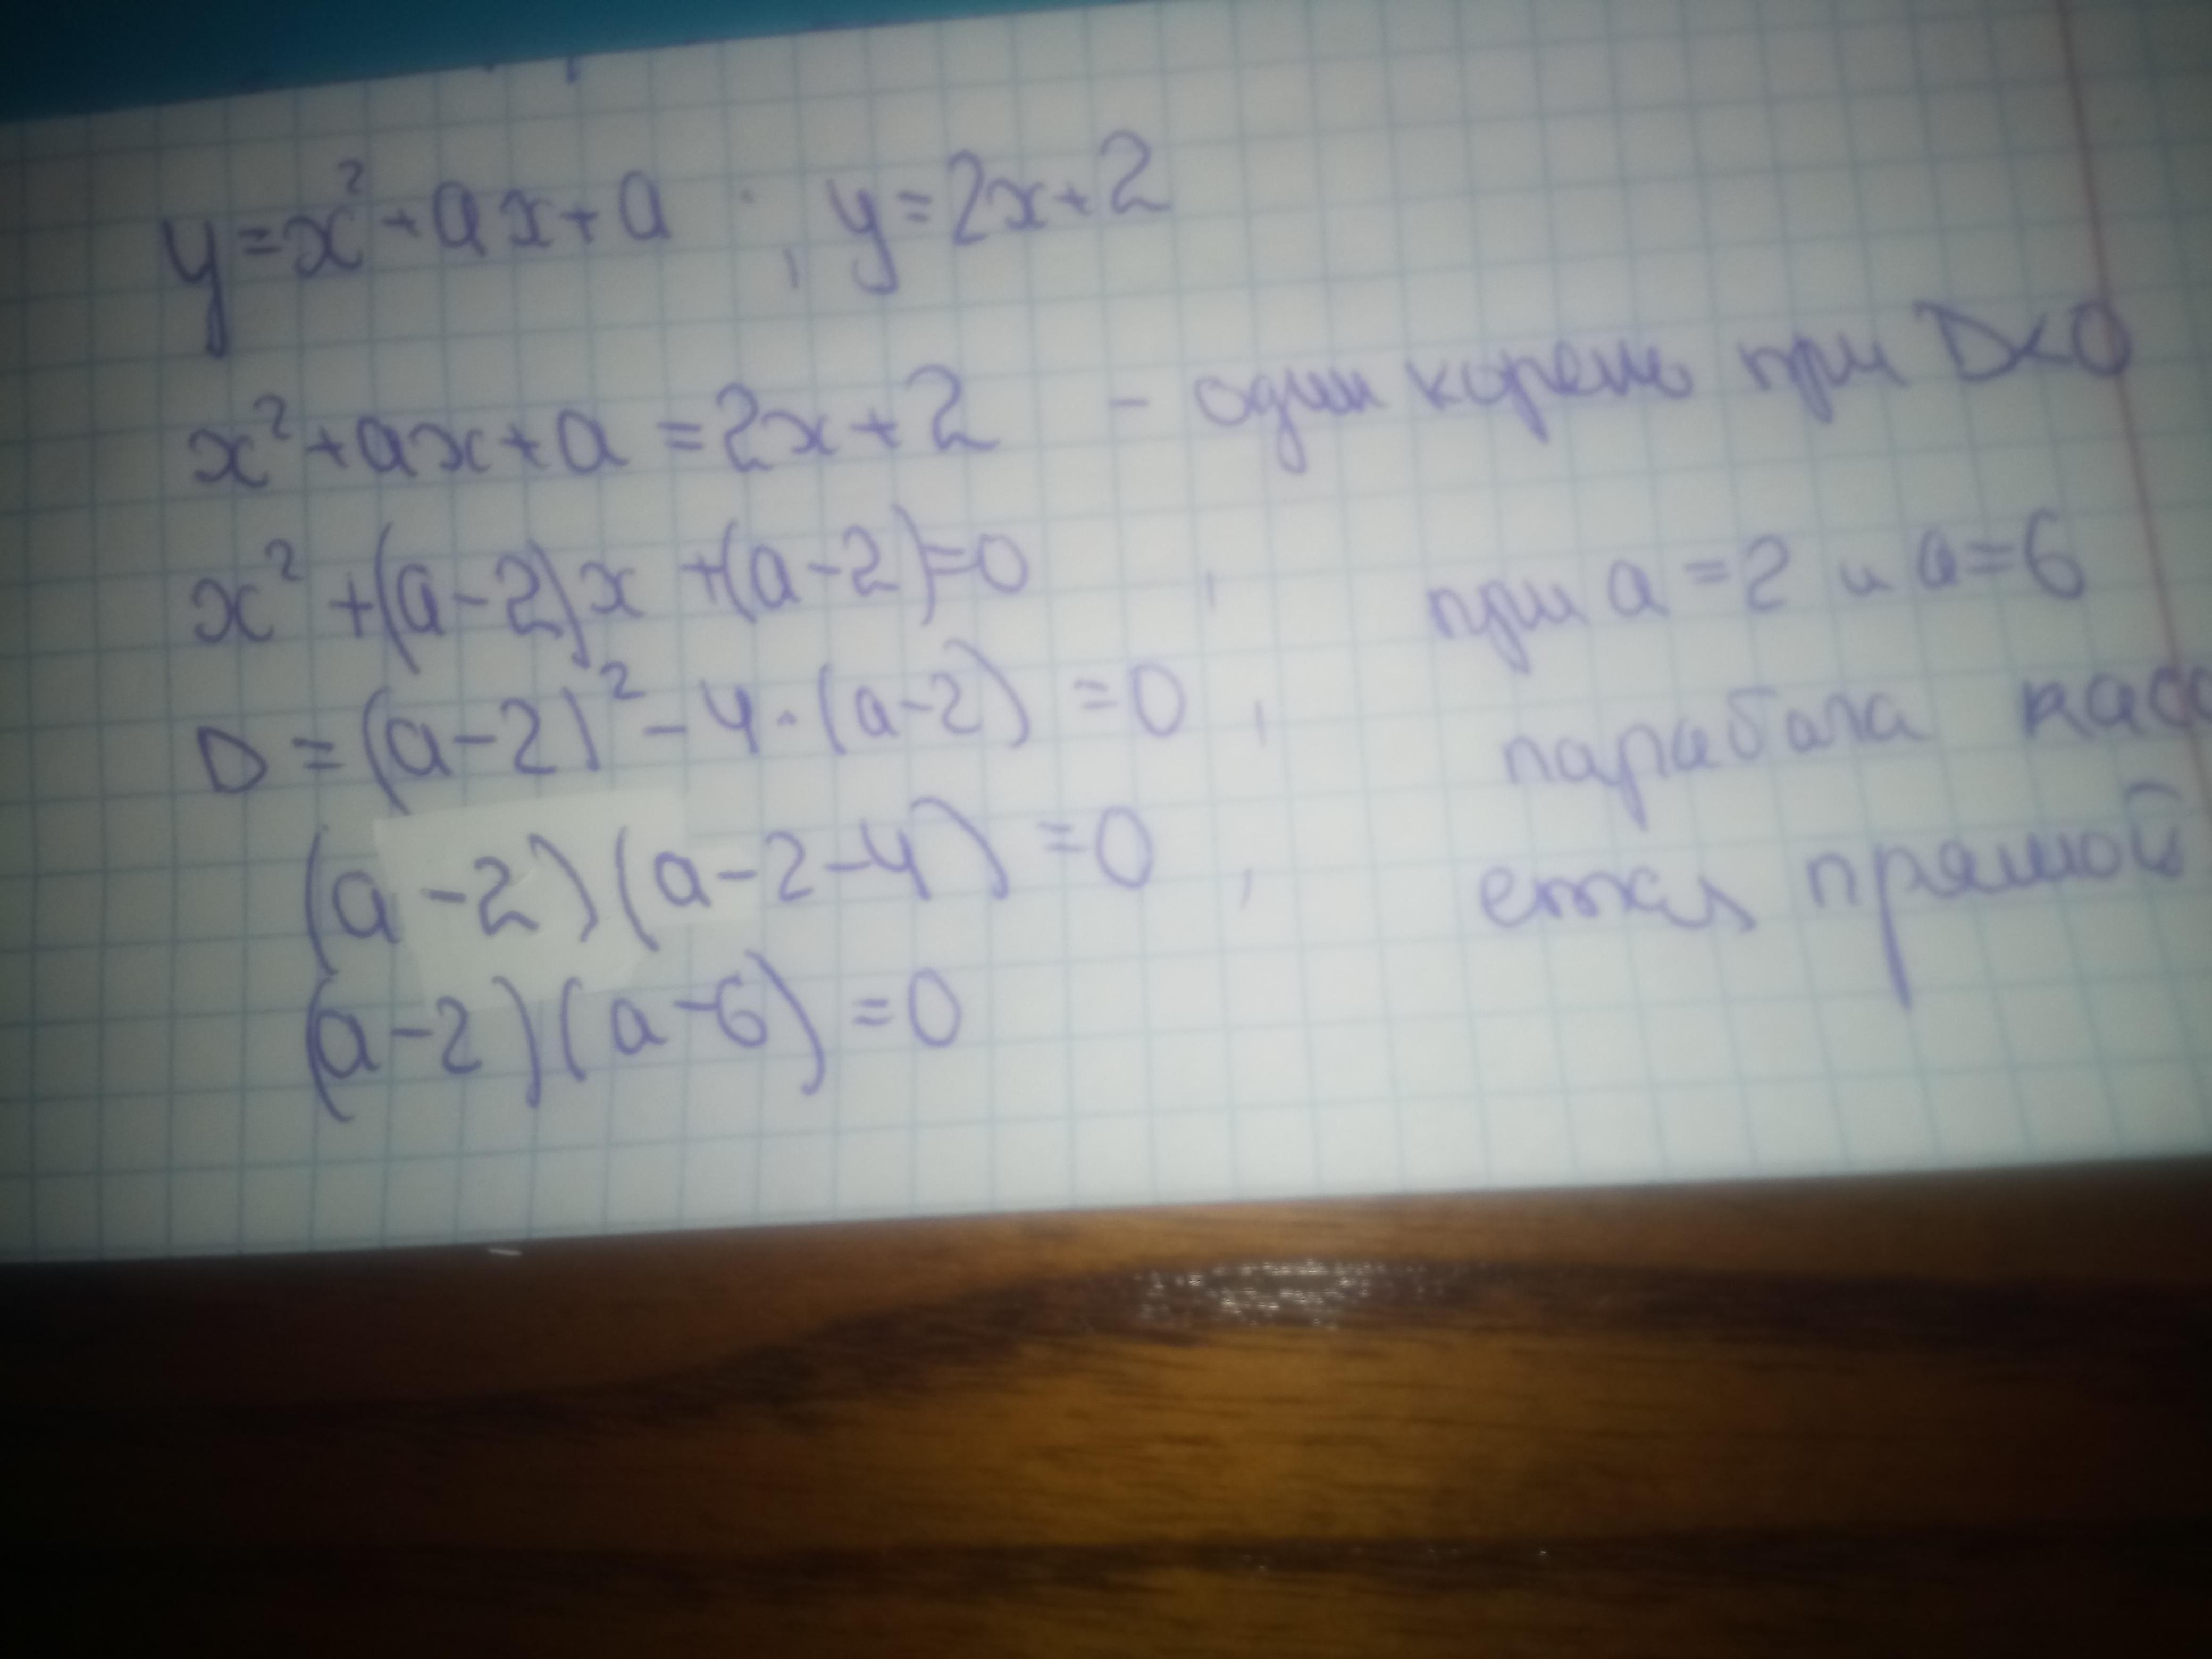 y=x²+ax+a , y=2x+2
x²+ax+a=2x+2 - один корень при D<0
x²+(a-2)x+(a-2)=0 , при a=2 и a=6
D=(a-2)²-4·(a-2)=0 , парабола каса
(a-2)(a-2-4)=0 , ется прямой
(a-2)(a-6)=0